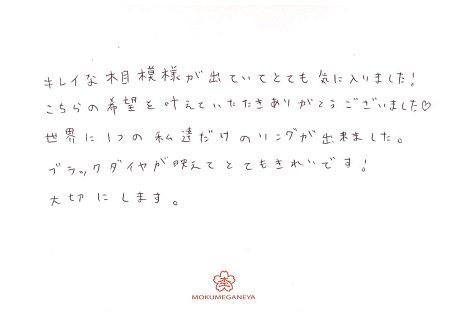 キレイな木目模様が出ていてとても気に入りました！
こちらの希望を叶えていただきありがとうございました♡
世界に1つの私達だけのリングが出来ました。
ブラックダイヤが映えてとてもきれいです！
大切にします。
MOKUMEGANEYA